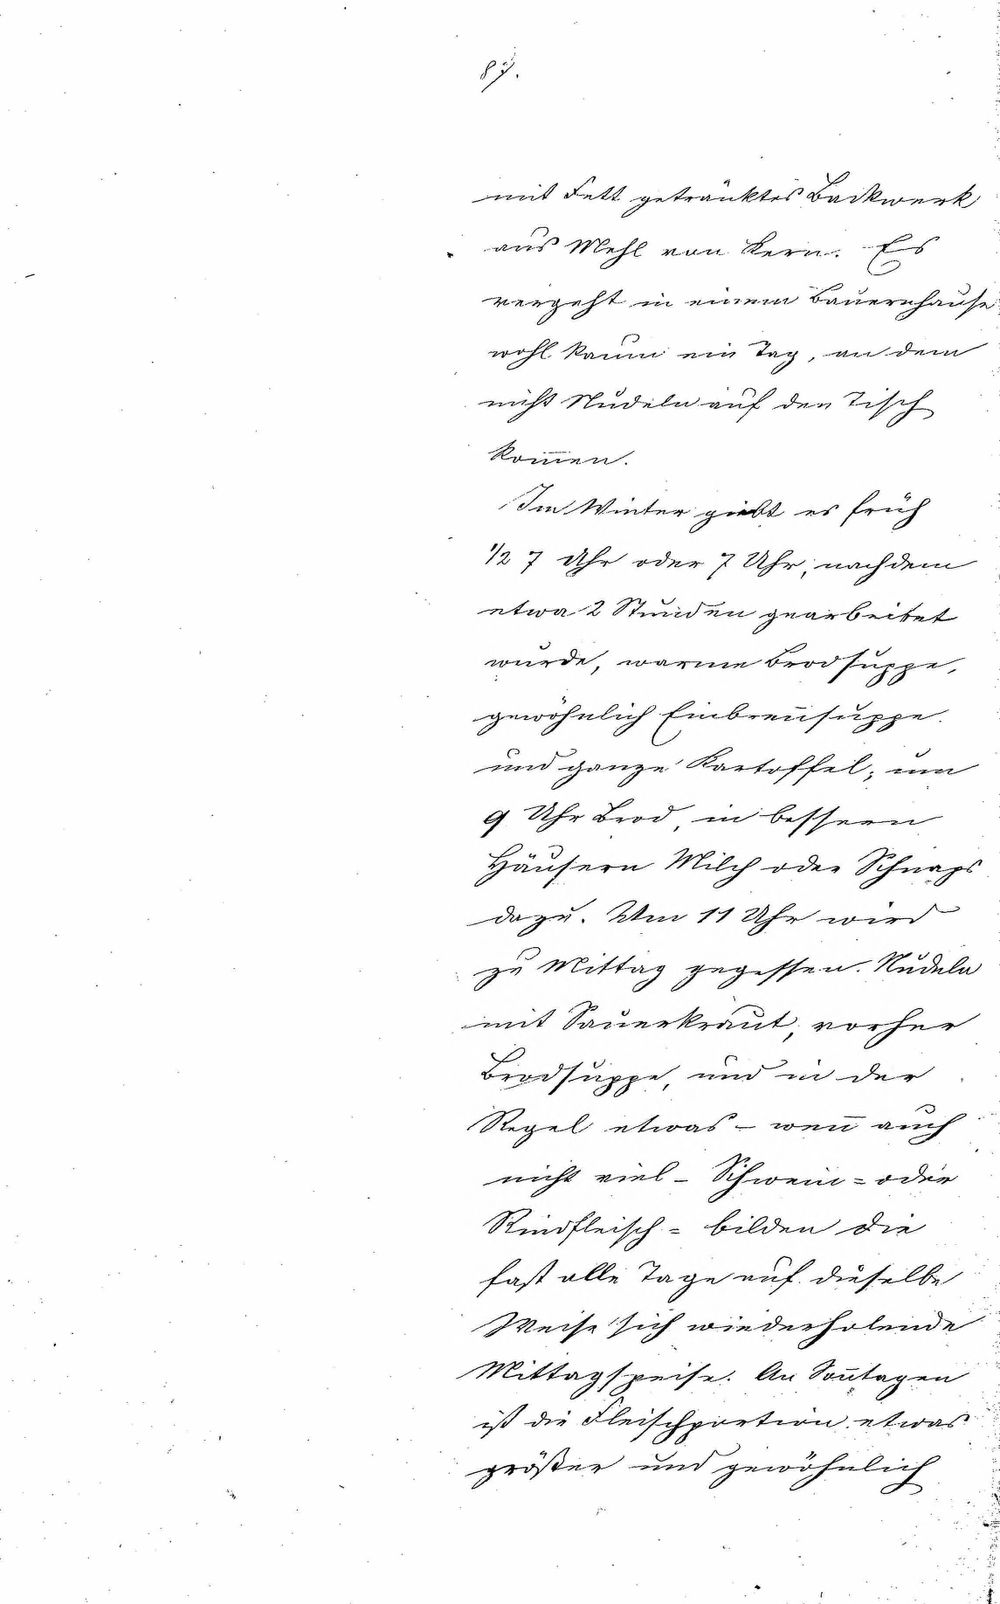 87.
mit Fett getränktes Backwerk
aus Mehl von Kern. Es
vergeht in einem Bauernhause
wohl kaum ein Tag, an dem
nicht Nudeln auf den Tisch
kom̅en.
Im Winter giebt es früh
1/2 7 Uhr oder 7 Uhr, nachdem
etwa 2 Stunden gearbeitet
wurde, warme Brodsuppe,
gewöhnlich Einbren̅suppe
und ganze Kartoffel; um
9 Uhr Brod, in bessern
Häusern Milch oder Schnaps
dazu. Um 11 Uhr wird
zu Mittag gegessen. Nudeln
mit Sauerkraut, vorher
Brodsuppe, und in der
Regel etwas – wen̅ auch
nicht viel – Schwein- oder
Rindfleisch - bilden die
fast alle Tage auf dieselbe
Weise sich wiederholende
Mittagspeise. An Son̅tagen
ist die Fleischportion etwas
größer und gewöhnlich